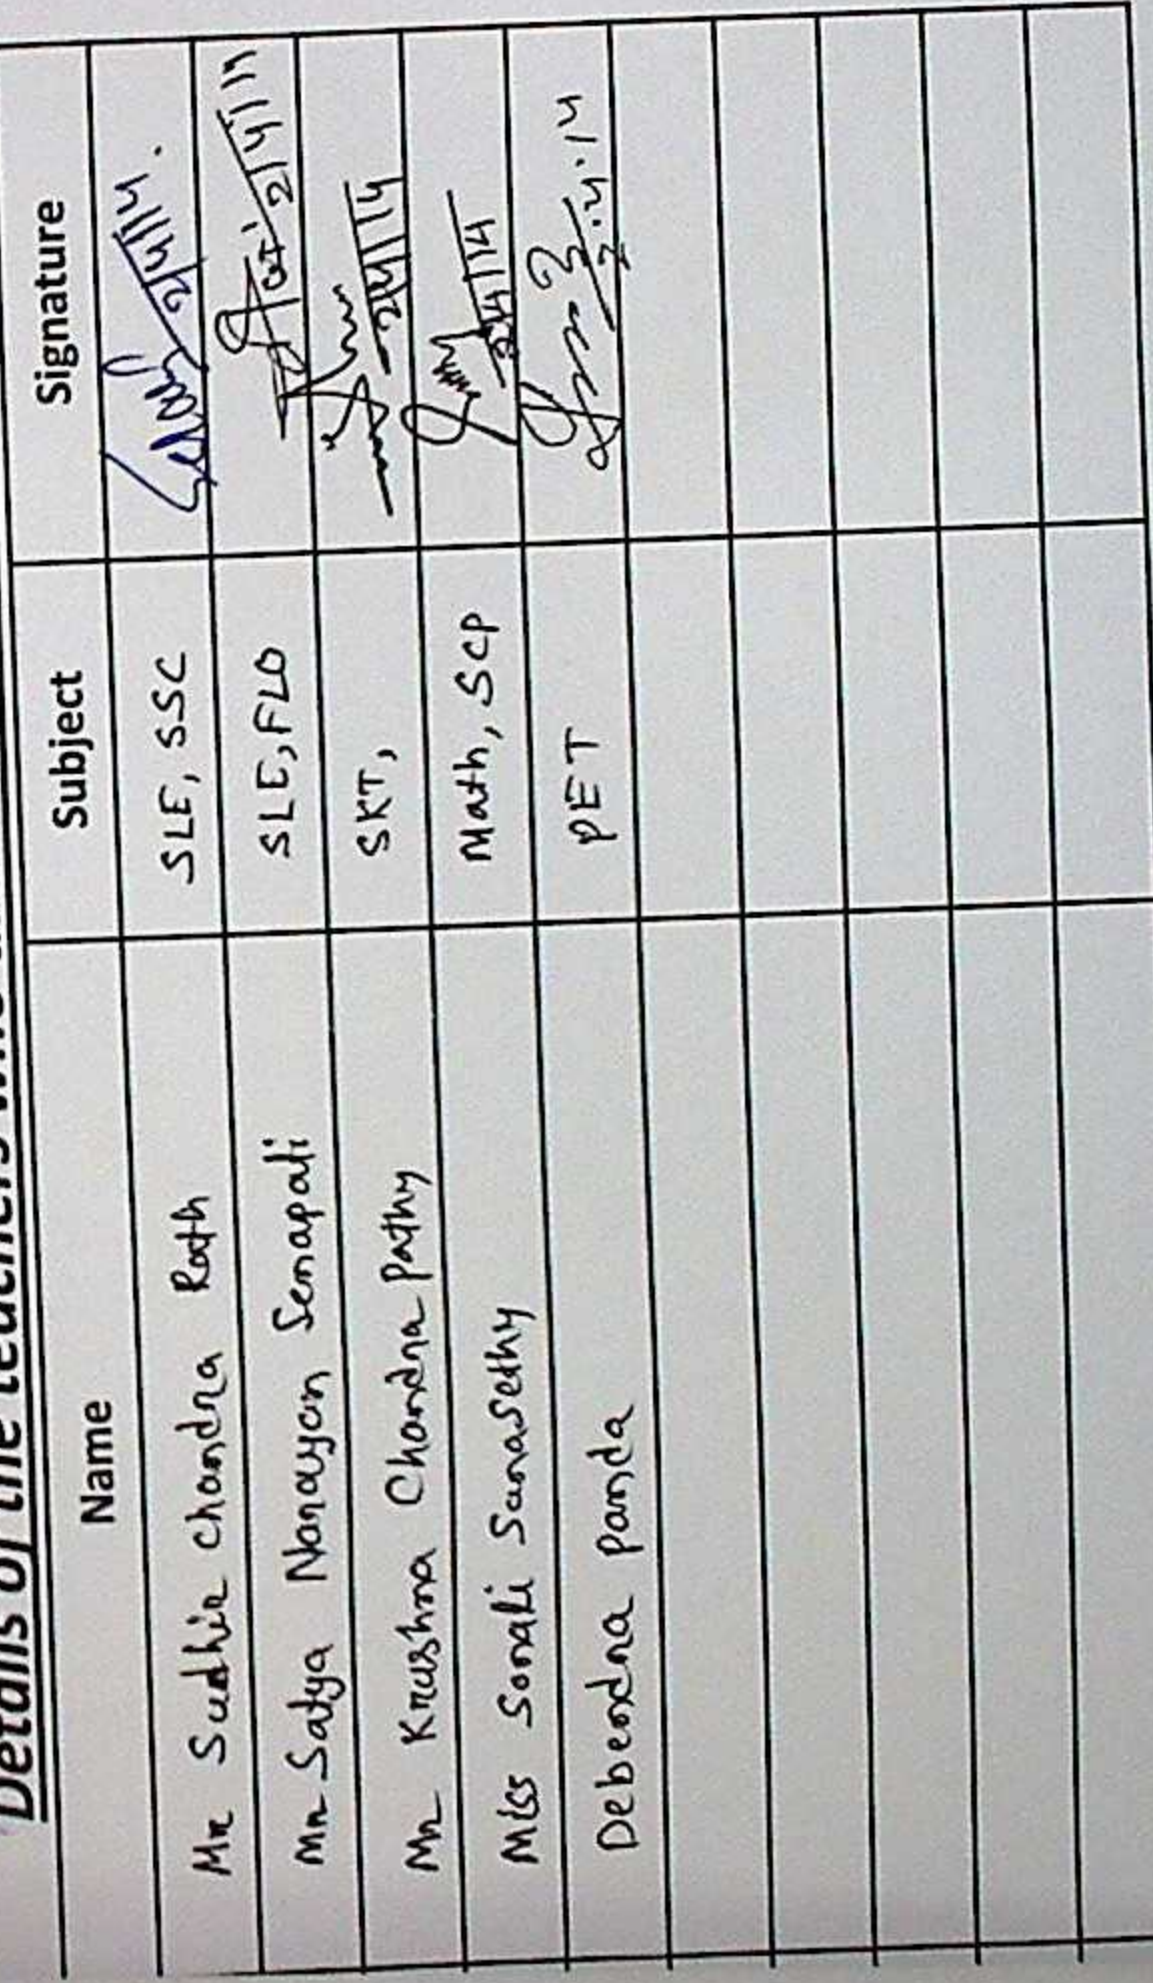 Details of the teachers
Name Subject Signature
Mr Sudhir Chandra Rath SLE, SSC 2/4/14.
Mr Satya Narayan Senapati SLE, FLO 2/4/14
Mr Krushna Chandra Pathy SKT, 2/4/14
Miss Sonali Sunasethy Math, SCP 2/4/14
Debendra Panda PET 2.4.14